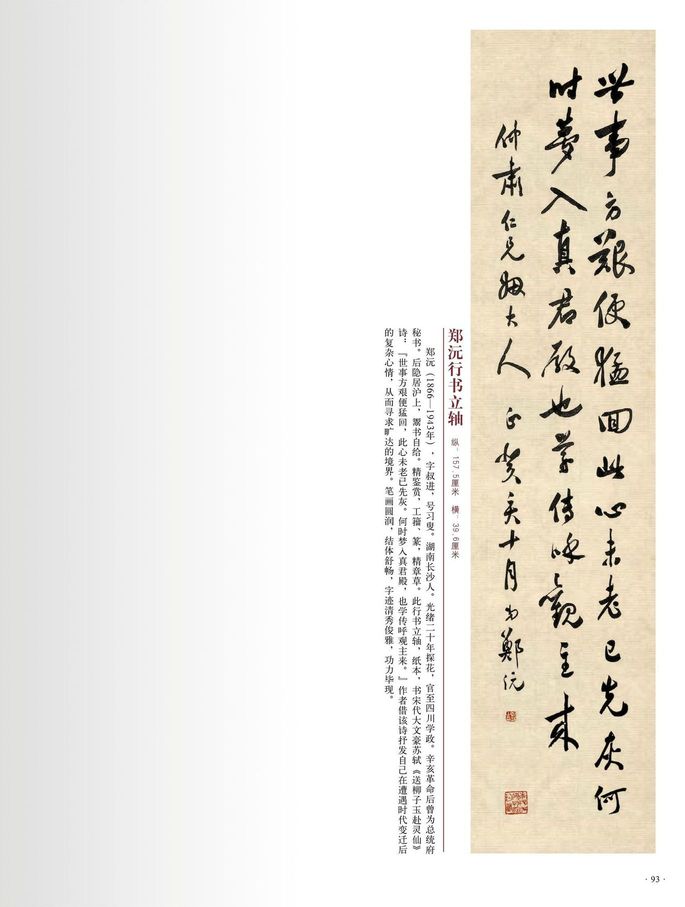 世事方艱便猛回此心未老已先灰何
时夢入真君殿也学傳呼觀主来
仲肅仁兄姻大人 正 癸亥十月 弟鄭沅
郑沅行书立轴 纵：157.5厘米 横：39.6厘米
郑沅（1866—1943年），字叔进，号习叟。湖南长沙人。光绪二十年探花，官至四川学政。辛亥革命后曾为总统府
秘书。后隐居沪上，鬻书自给。精鉴赏，工籀、篆，精章草。此行书立轴，纸本，书宋代大文豪苏轼《送柳子玉赴灵仙》
诗：『世事方艰便猛回，此心未老已先灰。何时梦入真君殿，也学传呼观主来。』作者借该诗抒发自己在遭遇时代变迁后
的复杂心情，从而寻求旷达的境界。笔画圆润，结体舒畅，字迹清秀俊雅，功力毕现。
·93·